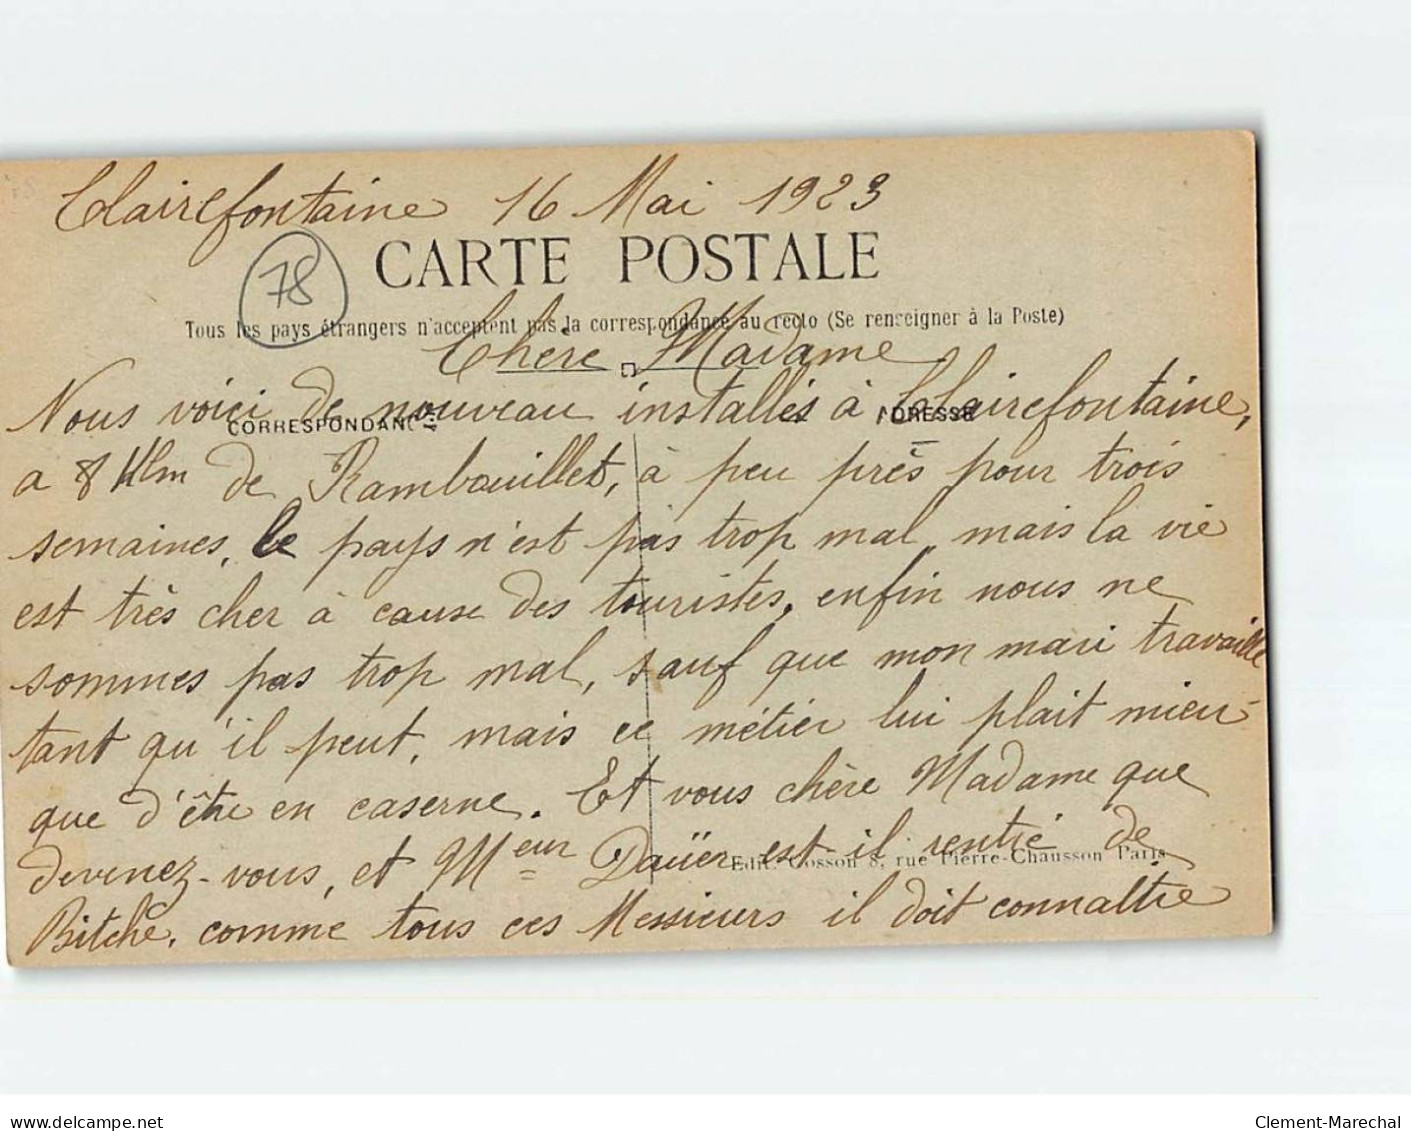 Clairefontaine 16 Mai 1923
78
CARTE POSTALE
Tous les pays étrangers n'acceptent pas la correspondance au recto (Se renseigner à la Poste)
Chère Madame
Nous voici de nouveau installés à Clairefontaine,
CORRESPONDANCE
ADRESSE
a 8 Klm de Rambouillet, à peu près pour trois
semaines, le pays n'est pas trop mal, mais la vie
est très cher à cause des touristes, enfin nous ne
sommes pas trop mal, sauf que mon mari travaille
tant qu'il peut, mais ce métier lui plait mieu
que d'être en caserne. Et vous chère Madame que
devenez-vous, et Meur Daüer est-il rentré de
Edit. Cosson 8, rue Pierre-Chausson Paris
Bitche, comme tous ces Messieurs il doit connaître
www.delcampe.net
Clement-Marechal